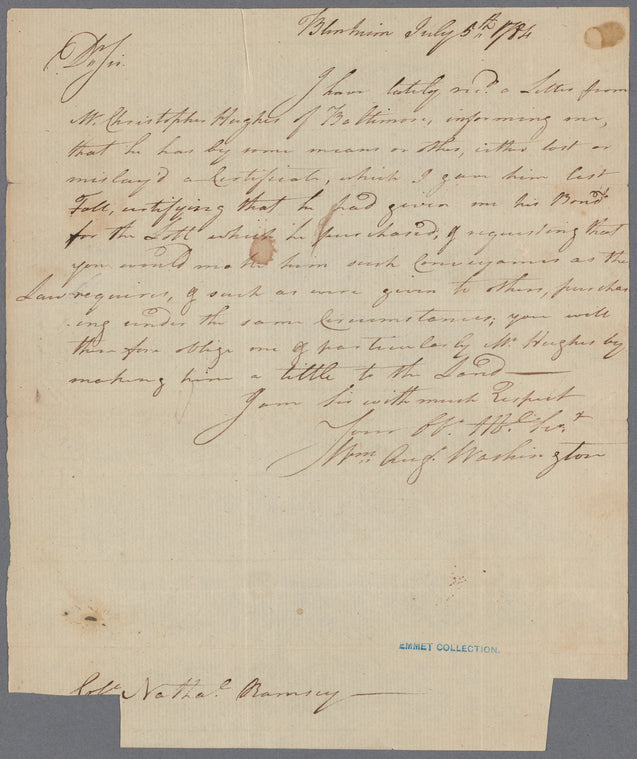 Blenheim July 5th 1784
Dr Sir.
I have lately recd. a Letter from
Mr. Christopher Hughes of Baltimore, informing me,
that he has by some means or other, either lost or
mislay'd a Certificate, which I gave him last
Fall, certifying that he had given me his Bond
for the Lott which he purchased, & requesting that
you would make him such Conveyances as the
Law requires, & such as were given to others, purchas
-ing under the same Circumstances; you will
therefore oblige me & particularly Mr Hughes by
making him a tittle to the Land —
I am Sir with much Respect
Your Ob. Hble. Servt
Wm. Augt. Washington
EMMET COLLECTION.
Colo. Nathal. Ramsey —